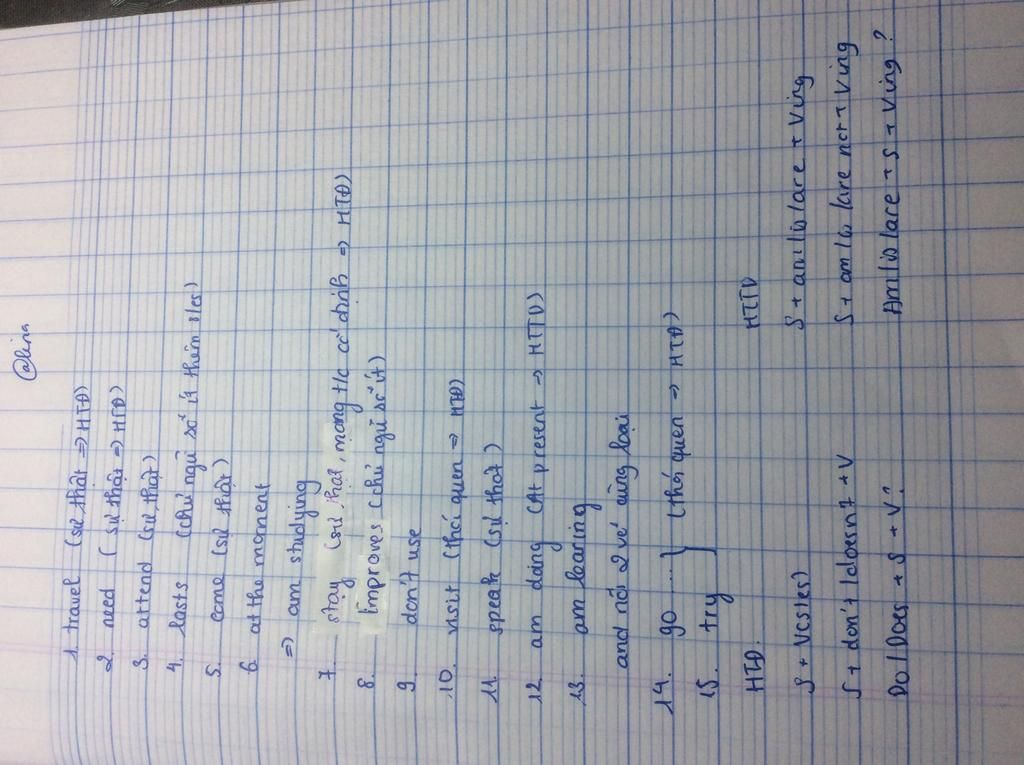 @lina
1. travel (sự thật => HTĐ)
2. need (sự thật => HTĐ)
3. attend (sự thật)
4. lasts (chủ ngữ số ít thêm s/es)
5. come (sự thật)
6. at the moment
=> am studying
7. stay (sự thật, mang t/c cố định => HTĐ)
8. Improves (chủ ngữ số ít)
9. don't use
10. visit (thói quen => HTĐ)
11. speak (sự thật)
12. am doing (At present -> HTTD)
13. am learing
and nối 2 vế cùng loại
14. go ... } (thói quen -> HTĐ)
15. try
HTĐ. HTTD
S + Vcs/es) S + am/is/are + Ving
S + don't/doesn't + V S + am/is/are not + Ving
Do/Does + S + V? Am/is/are + S + Ving?